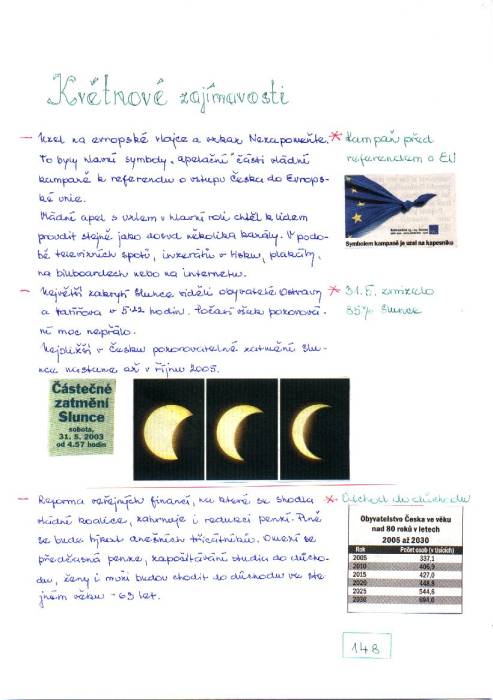 Květnové zajímavosti
– Uzel na evropské vlajce a vzkaz Nezapomeňte.
To byly hlavní symboly „apelační“ části vládní
kampaně k referendu o vstupu Česka do Evrops-
ké unie.
Vládní apel s uzlem v hlavní roli chtěl k lidem
proudit stejně jako dosud několika kanály. V podo-
bě televizních spotů, inzerátů v tisku, plakátů,
na billboardech nebo na internetu.
* Kampaň před
referendem o EU
Symbolem kampaně je uzel na kapesníku
– Největší zakrytí Slunce viděli obyvatelé Ostravy
a Karviné v 5.22 hodin. Počasí však pozorová-
ní moc nepřálo.
Nejbližší v Česku pozorovatelné zatmění Slu-
nce nastane až v říjnu 2005.
* 31.5. zmizelo
85% Slunce
Částečné
zatmění
Slunce
sobota,
31. 5. 2003
od 4.57 hodin
– Reforma veřejných financí, na které se shodla
vládní koalice, zahrnuje i redukci penzí. Plně
se bude týkat dnešních třicátníků. Omezí se
předčasná penze, započítávání studia do důcho-
du, ženy i muži budou chodit do důchodu ve ste-
jném věku - 63 let.
* Odchod do důchodu
Obyvatelstvo Česka ve věku
nad 80 roků v letech
2005 až 2030
Rok Počet osob (v tisících)
2005 337,1
2010 406,9
2015 427,0
2020 448,9
2025 544,6
2030 694,0
148